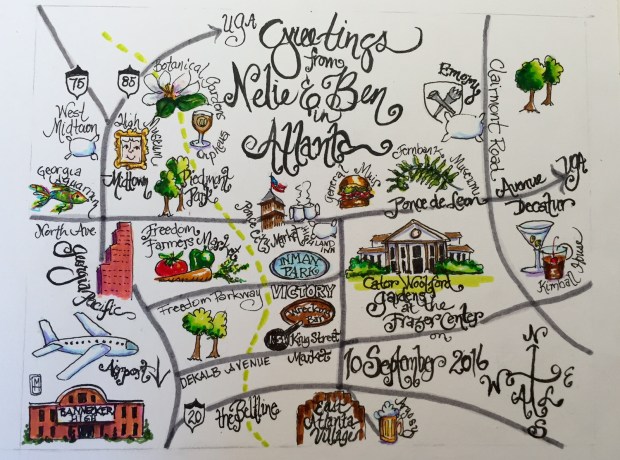 UGA
Greetings
from
Nelie & Ben
in
Atlanta
75
85
Botanical
Gardens
West
Midtown
High
Museum
Midtown
Orpheus
Piedmont
Park
Georgia
Aquarium
Emory
Clairmont Road
Fernbank
Museum
General Muir
Ponce de Leon
Avenue
UGA
Decatur
Kimball House
North Ave
Georgia
Pacific
Freedom
Farmers Market
Ponce City
Market
INMAN
PARK
VICTORY
Cator Woolford
Gardens
at the
Frazer Center
on
10 September 2016
Freedom Parkway
King Street
Market
DEKALB AVENUE
Airport
BANNEKER
HIGH
20
the Beltline
East
Atlanta
Village
Argosy
N
W
E
S
ATL